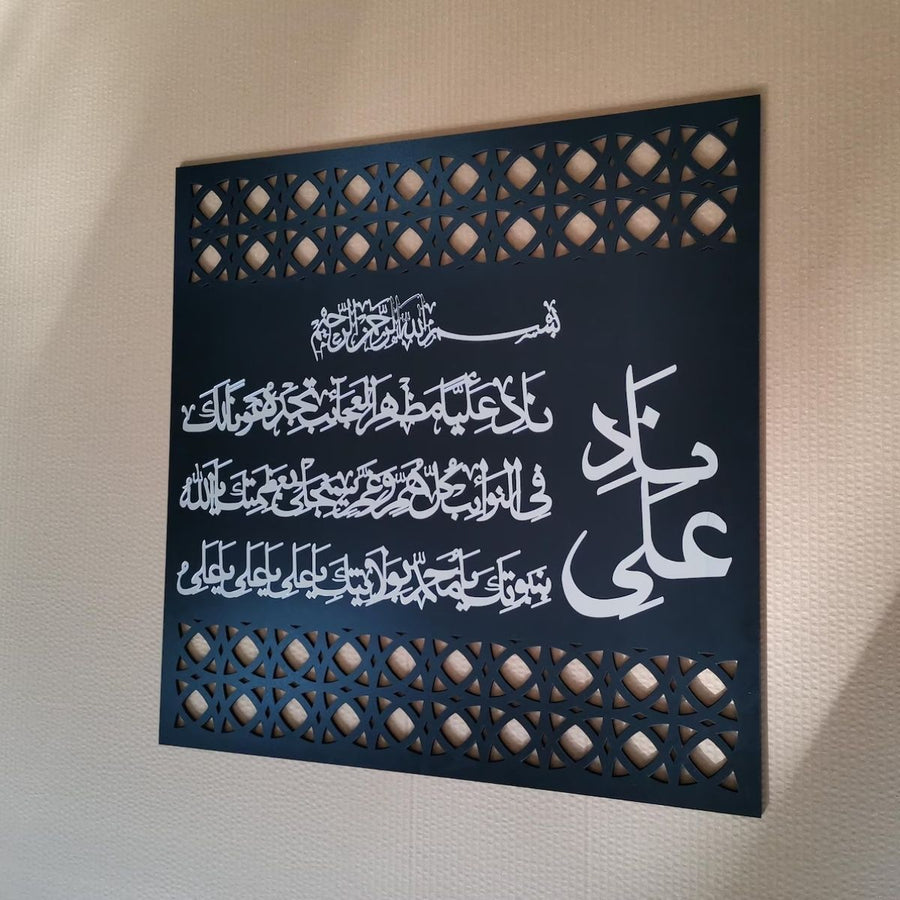 بسم الله الرحمن الرحيم
نَادِ عَلِيًّا مَظْهَرَ الْعَجَآئِبِ تَجِدْهُ عَوْنًا لَكَ
فِي النَّوَائِبِ كُلُّ هَمٍّ وَغَمٍّ سَيَنْجَلِي بِعَظَمَتِكَ يَا اللهُ
بِنُبُوَّتِكَ يَا مُحَمَّدُ بِوَلَايَتِكَ يَا عَلِي يَا عَلِي يَا عَلِي
نادِ
علي